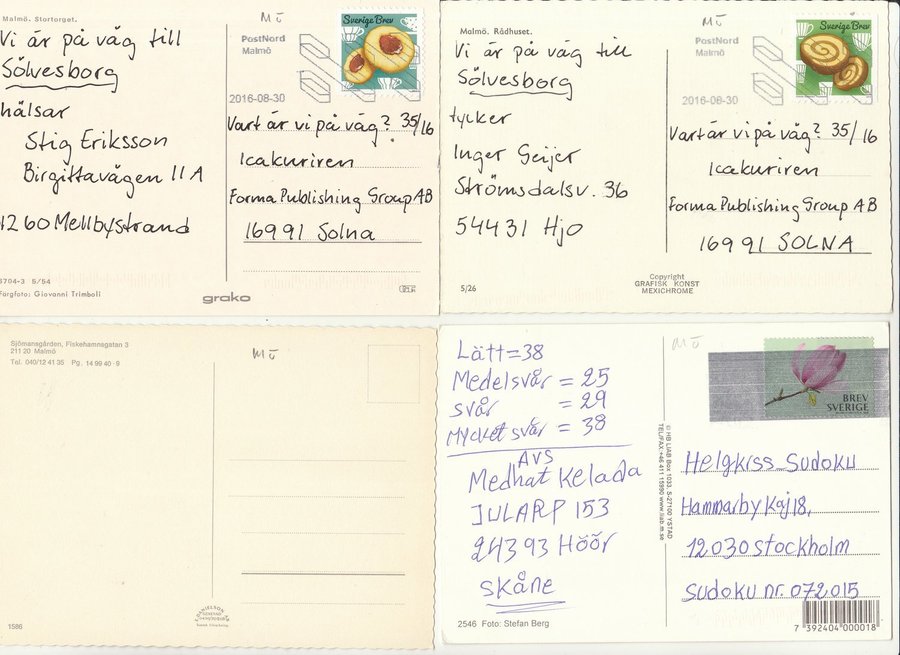 Malmö. Stortorget.
Mü
Sverige Brev
PostNord
Malmö
2016-08-30
Vi är på väg till
Sölvesborg
hälsar
Stig Eriksson
Birgittavägen 11 A
1260 Mellbystrand
Vart är vi på väg? 35/16
Icakuriren
Forma Publishing Group AB
16991 Solna
3704-3 5/54
Färgfoto: Giovanni Trimboli
grako
Malmö. Rådhuset.
Mü
Sverige Brev
PostNord
Malmö
2016-08-30
Vi är på väg till
Sölvesborg
tycker
Inger Geijer
Strömsdalsv. 36
54431 Hjo
Vart är vi på väg? 35/16
Icakuriren
Forma Publishing Group AB
16991 SOLNA
5/26
Copyright
GRAFISK KONST
MEXICHROME
Sjömansgården, Fiskehamnsgatan 3
211 20 Malmö
Tel. 040/12 41 35 Pg. 14 99 40 - 9
Mü
1586
Mü
BREV
SVERIGE
Lätt=38
Medelsvår = 25
svår = 29
Mycket svår = 38
AVS
Medhat Kelada
JULARP 153
24393 Höör
SKÅNE
© HB LIAB Box 1033, S-27100 YSTAD
TEL/FAX +46 411 15980 www.liab.m.se
Helgkiss Sudoku
Hammarby Kaj 18,
12030 stockholm
sudoku nr. 072015
2546 Foto: Stefan Berg
7 392404 000018